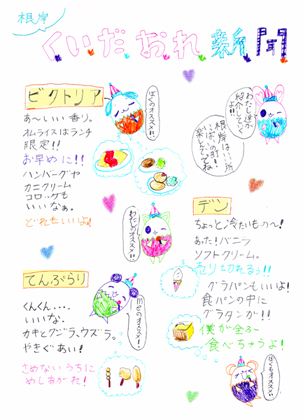 根岸
くいだおれ新聞
わたし達が
紹介して
ビクトリア
ぼくのオススメ!!
あ～いい香り。
オムライスはランチ
限定!!
お早めに!!
ハンバーグや
カニクリーム
コロッケも
いいなぁ。
どれもいいよ!
根岸は
わたしのオススメ!
デン
ちょっと冷たいもの～!
あった!バニラ
ソフトクリーム。
売り切れるぅ!!
グラパンもいいよ!
食パンの中に
グラタンが!!
僕が全部
食べちゃうよ!
ぼくもオススメ!
てんぷらり
くんくん・・・。
いいな、
カキとクジラ、ウズラ。
やきぐあい!
Meのオススメ!
さめないうちに
めしあがれ!